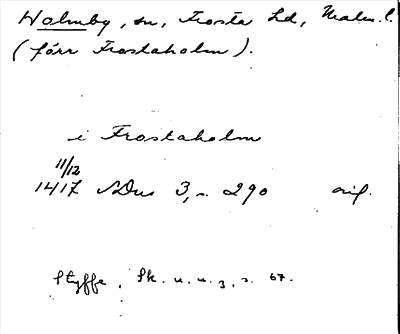 Holmby, sn, Frosta hd, Malm. l.
(förr Frostaholm).
i Frostaholm
11/12
1417 SDns 3, s. 290 orig.
Styffe, Sk. u. u. 3, s. 67.